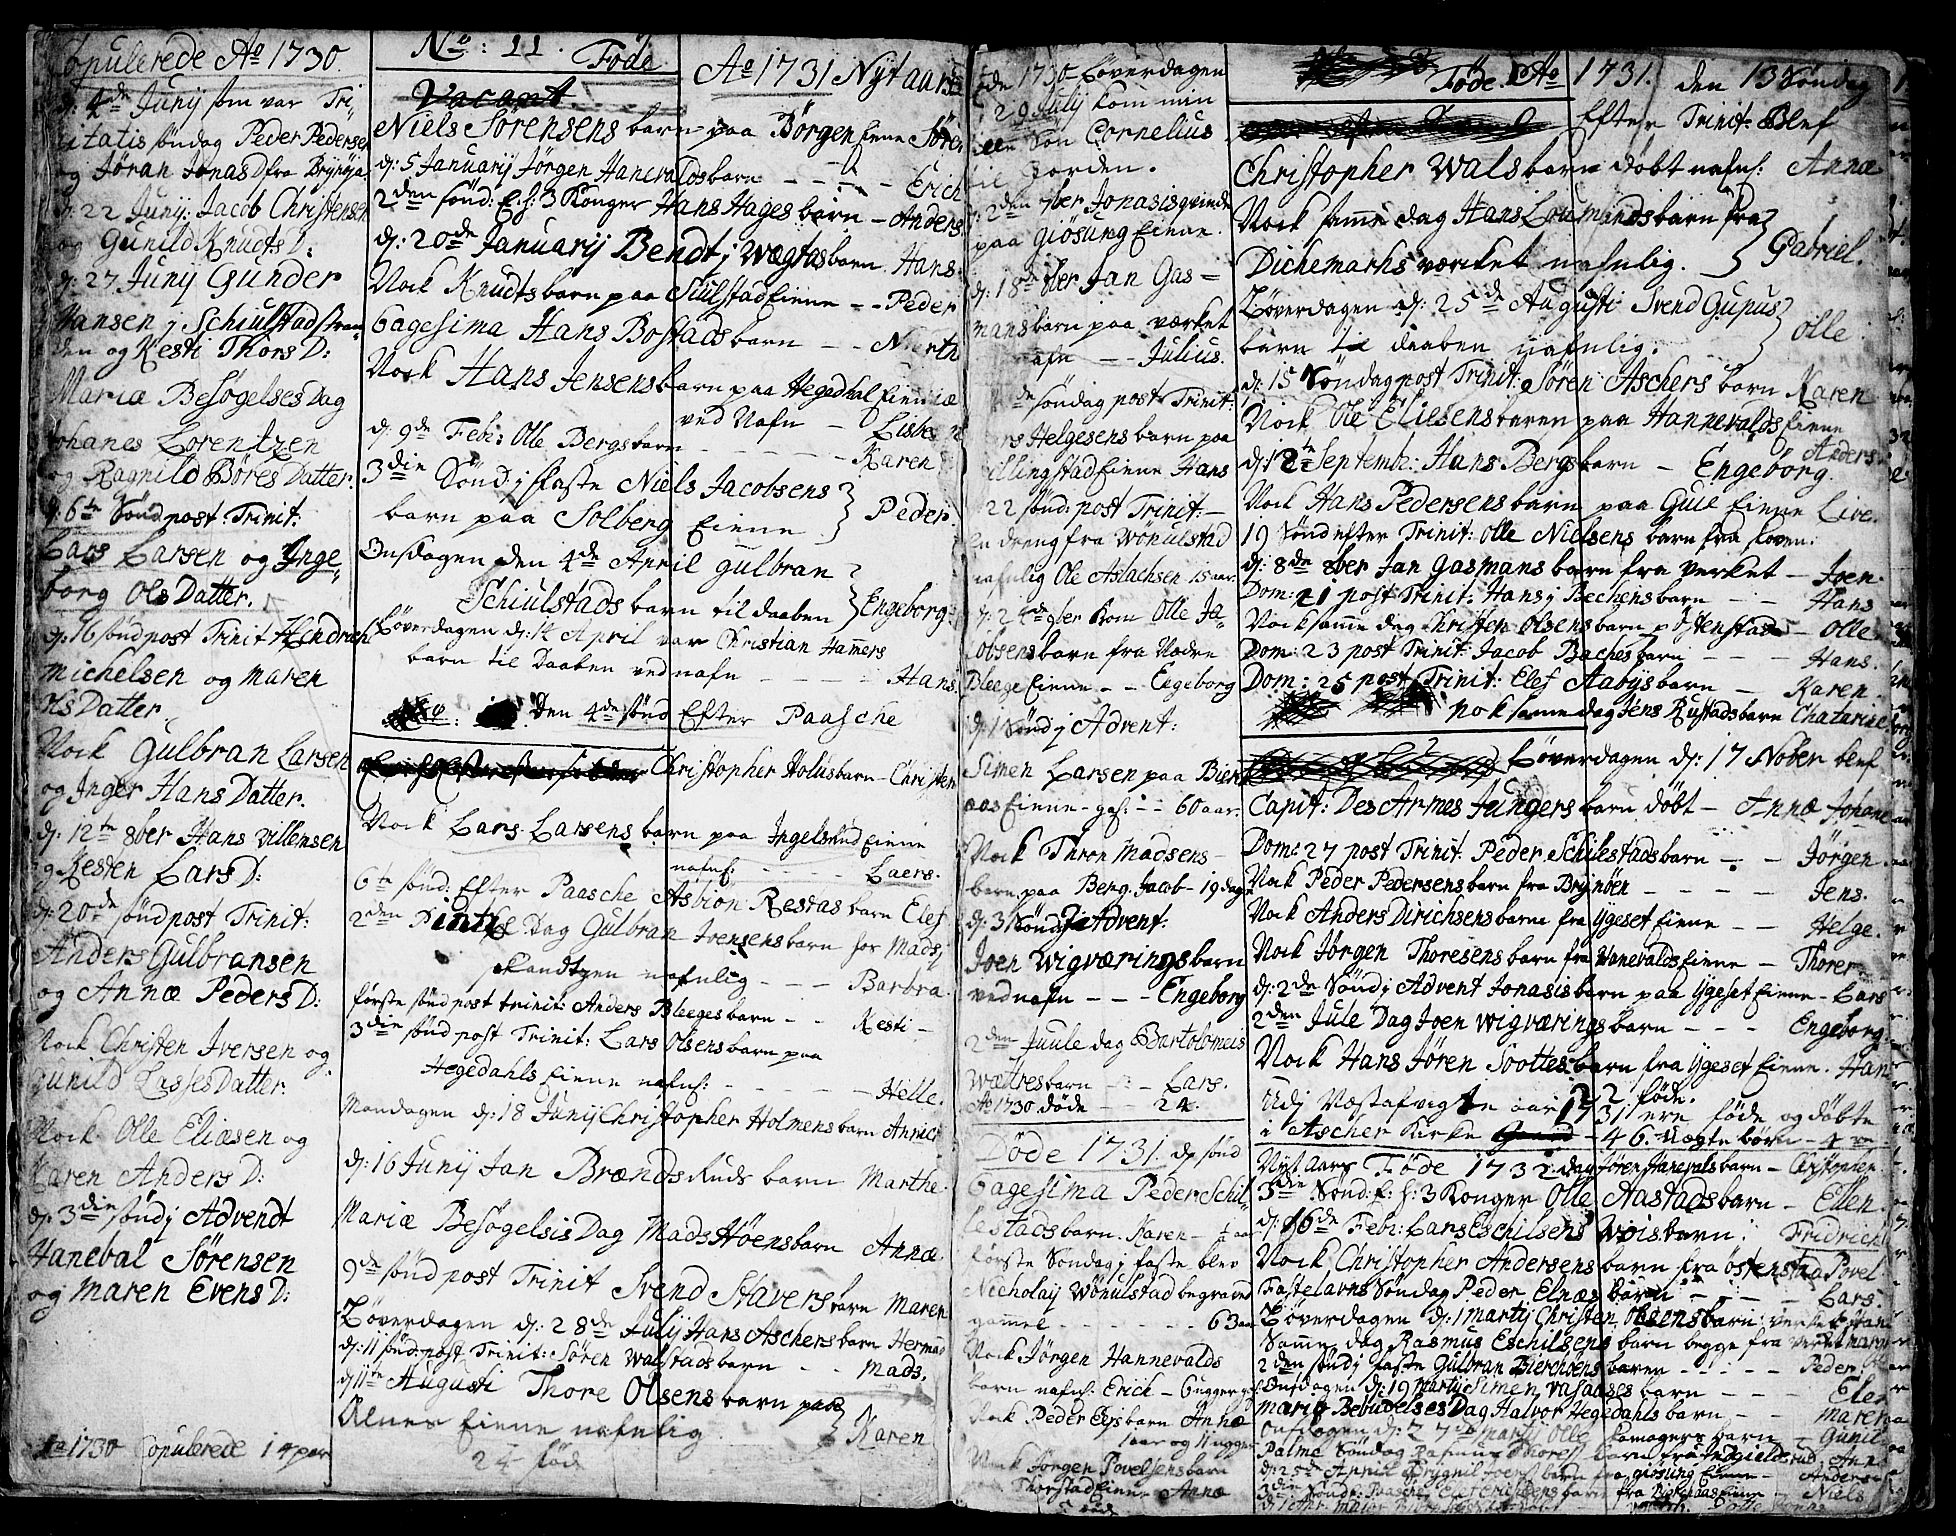 Copulerede Ao 1730.
d: 4de Junij som var Tri-
nitatis søndag Peder Pedersen
og Jøran Jonas D fra Brÿnøja
d: 22 Junij: Jacob Christensen
og Gunild Knudts D:
d: 27 Junij Gunder
Hansen j Schiulstadstran-
den og Kesti Thors D:
Mariæ Besøgelses Dag
Johanes Lorentzen
og Ragnild Børes Datter.
d: 6te Sønd post Trinit:
Lars Larsen og Inge-
borg Ols Datter.
d: 16 sønd post Trinit Hendrich
Michelsen og Maren
Datter
Nock Gulbran Larsen
og Inger Hans Datter.
d: 12te 8ber Hans Villensen
og Kesten Lars D:
d: 20de sønd post Trinit:
Anders Gulbransen
og Annæ Peders D:
Nock Christen Iversen og
gunild Lasses Datter.
Nock Olle Eliæsen og
Karen Anders D:
d: 3die sønd j Advendt
Hanebal Sørensen
og Maren Evens D:
Ao 1730 Copulerede 14 par
No: 11. Føde Ao 1731 Nytaars
Vacant
Niels Sørensens barn paa Børgen Eiene Søren
d: 5 Januarij Jørgen Hanevalds barn - - - Erich
2den sønd: E: h: 3 Konger Hans Hages barn - Anders
d: 20de Januarij Bendt j Wægtas barn Hans
Nock Knudts barn paa Siulstad Eiene - - Peder
6agesima Hans Bostads barn - - Marth
Nock Hans Jensens barn paa Hegedhal Eiene
ved Nafn - Lisbe
d: 9de Feb: Olle Bergs barn - - - Karen
3die Sønd j faste Niels Jacobsens
barn paa Solberg Eiene } Peder
Onsdagen den 4de April gulbran
Schiulstads barn til daaben } Engeborg:
Løverdagen d: 14 April var Christian Hamers
barn til Daaben ved nafn - - - - Hans
Den 4de sønd Efter Paasche
Christopher Holus barn - Christen
Nock Lars Larsens barn paa Ingelsrud Eiene
nafnl: - - - Laers.
6te sønd: Efter Paasche Asbiøn Restas barn Elef
2den Pintse Dag Gulbran Joensens barn for Mads
skandtzen nafnlig - - - Barbra
første sønd post trinit: Anders Bleeges barn - - Kesti -
3die sønd post Trinit: Lars Olsens barn paa
Hegedahls Eiene nafnl: - - - Helle.
Mandagen d: 18 Junij Christopher Holmens barn Annic
d: 16 Junij Jan Brænds Ruds barn Marthe.
Mariæ Besøgelsis Dag Mads Høens barn Annæ
9de sønd post Trinit Svend Stavers barn Maren
Løverdagen d: 28de Julij Hans Aschers barn Herman
d: 11 sønd: post Trinit: Søren Walstads barn - Mads.
d: 11te Augusti Thore Olsens barn paa
Alnes Eiene nafnlig. } Karen
24 fød
Døde 1730 Løverdagen
d 29 Julij kom min
Søn Cornelius
til Jorden.
d: 2den 7ber Jonasis qvinde
paa giøsung Eiene.
d: 18de 8ber Jan Gas-
mans barn paa værcket
nafn - - Julius.
søndag post Trinit:
Helgesens barn paa
Ellingstad Eiene Hans
22 sønd: post Trinit: -
En dreng fra Wønulstad
nafnlig Ole Aslachsen 15 aar.
d: 24de 9ber kom Olle Ja-
cobsens barn fra Nædre
Bleege Eiene - - Engeborg
d: 1 sønd j Advent:
Simen Larsen paa Bier
aas Eiene - gaf: - - 60 aar.
Nock Thron Madsens -
barn paa Berg. Jacob - 19 dage
d: 3 Sønd j Advent:
Joen Wigværings barn
ved nafn - - - Engeborg
2den Juule dag Bartolomeus
Wættres barn - - Lars.
Ao 1730 døde - - 24.
Døde 1731. dj sønd
6agesima Peder Schiul-
lestads barn. Karen - ½ aar
første Søndag j faste blev
Nicholaij Wønulstad begraved
gammel - - - - 63 aar
Nock Jørgen Hannevalds
barn nafnl: Erich - 6 ugger gl:
Nock Peder Eijs barn Annæ
1 aar og 11 ugger
Nock Jørgen Povelsens barn
Thorstad Eiene Annæ
Føde Ao 1731. den 13 Søndag
Efter Trinit: Blef
Christopher Wals barn døbt nafnl: Annæ
Nock same dag Hans Loumands barn fra
Dichemarks værcket nafnlig. } Gabriel.
Løverdagen d: 25de Augusti Svend Gupus
barn til daaben nafnlig. } Olle
d: 15 Søndag post Trinit: Søren Aschers barn Karen
Nock Ole Eliesens baren paa Hannevalds Eiene
Anders.
d: 12te Septemb: Hans Bergs barn - Engeborg.
Nock Hans Pedersens barn paa Gue Eiene Live.
19 Sønd efter Trinit: Olle Nielsens barn fra skoven:
d: 8de 8ber Jan Gasmans barn fra Verket - Joen.
Dom: 21 post Trinit: Hans j Bechens barn - - Hans
Nock samme dag Christen Olsens barn p Østenstad - Olle
Dom: 23 post Trinit: Jacob Baches barn - - - Hans.
Dom: 25 post Trinit: Elef Aabys barn - Karen.
Nok same dag Jens Rustads barn Chatarine
Løverdagen d: 17 Nober blef
Capit: Des Armes Jungers barn døbt - Annæ Johane
Dom: 27 post Trinit: Peder Schulestads barn - - Jørgen
Nock Peder Pedersens barn fra Brÿnøen - - - Jens.
Nock Anders Dirichsens barn fra Ygeset Eiene - - Helge.
Nock Jørgen Thoresens barn fra Wanevalds Eiene - Thorer
d: 2de Sønd j Advent Jonasis barn paa Ygeset Eiene - Lars
2den Jule Dag Joen Wigværings barn - - - Engeborg
Nock Hans Jøren Soottes barn fra Ygeset Eiene. Han
22 føde.
Udj Næstafvigte aar 1731 ere føde og døbte
i Ascher Kirke - 46. Uægte børn - 4
Nÿt Aars Føde 1732. dag Jøren Hanevals barn - Christopher
3die Sønd: E: h: 3 Konger Olle Aastads barn - Ellen
d: 16de Feb: Lars Eschilsens Wois barn: Fridrich
Nock Christopher Andersens barn fra Østenstad Povel
Fastelavns Søndag Peder Elnæs barn - - - Lars.
Løverdagen d: 1 Martij Christen Olsens barn: verket Hans
Samme dag Rasmus Eschilsens barn begge fra verket Maren
2den sønd j faste Gulbran Bierchøens baren - - - Peder
Onsdagen d: 19 Martij Simen Vasaases barn - - Elen
Mariæ Bebudelses Dag Halvor Hegedahls barn - - Maren
Onsdagen d: 27de Martij Olle barn - Gunil
Palme Søndag Rasmus Thores barn fra Ingieldsrud Ann
d: 25de April Brÿgnil barn fra giøsung Eiene - Anders
barn fra Eiene - Niels